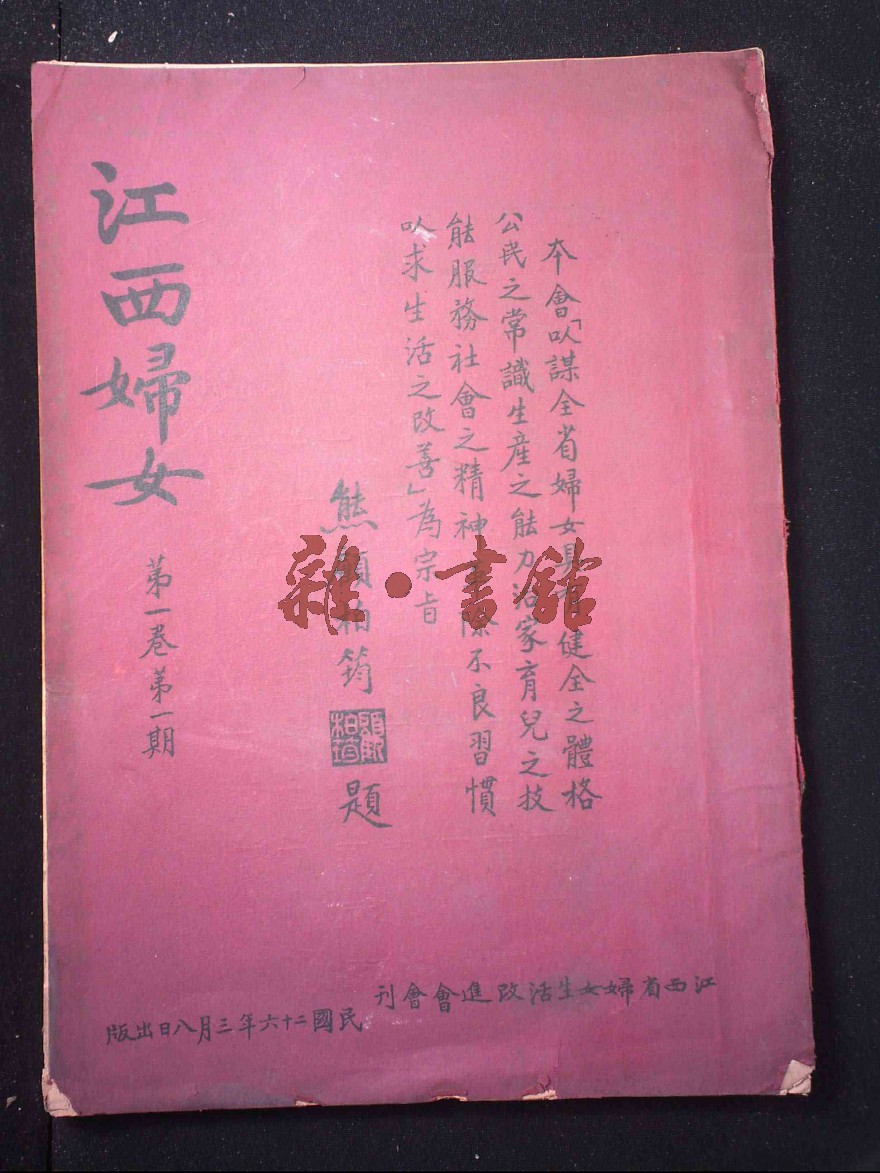 本會「以謀全省婦女具有健全之體格
公民之常識生產之能力治家育兒之技
能服務社會之精神革除不良習慣
以求生活之改善」為宗旨
熊顧柏筠題
江西婦女
第一卷第一期
江西省婦女生活改進會會刊
民國二十六年三月八日出版
雜·書館